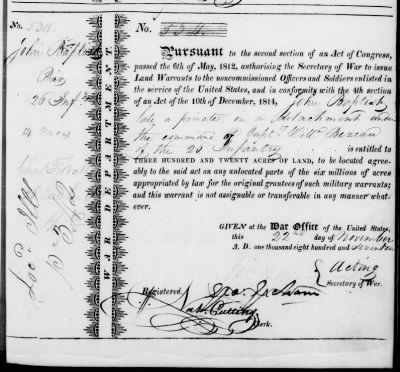 No. 534
John Baptist
Priv
26 Inf
WAR DEPARTMENT.
No. 534.
Pursuant to the second section of an Act of Congress,
passed the 6th of May, 1812, authorising the Secretary of War to issue
Land Warrants to the noncommissioned Officers and Soldiers enlisted in
the service of the United States, and in conformity with the 4th section
of an Act of the 10th of December, 1814, John Baptist
late a private in a detachment under
the command of Capt. Will Bezeau
of the 26 Infantry is entitled to
THREE HUNDRED AND TWENTY ACRES OF LAND, to be located agreeably
to the said act on any unlocated parts of the six millions of acres
appropriated by law for the original grantees of such military warrants; and
this warrant is not assignable or transferable in any manner what-
ever.
GIVEN at the War Office of the United States,
this 22nd day of November
A. D. one thousand eight hundred and seventeen
Acting
Secretary of War.
Registered,
Geo. Graham
Nat. Cutting
Clerk.